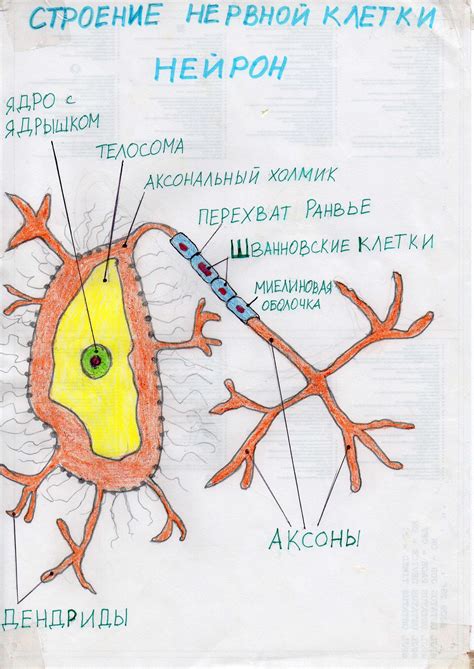 СТРОЕНИЕ НЕРВНОЙ КЛЕТКИ
НЕЙРОН
ЯДРО С
ЯДРЫШКОМ
ТЕЛОСОМА
АКСОНАЛЬНЫЙ ХОЛМИК
ПЕРЕХВАТ РАНВЬЕ
ШВАННОВСКИЕ КЛЕТКИ
МИЕЛИНОВАЯ
ОБОЛОЧКА
АКСОНЫ
ДЕНДРИДЫ